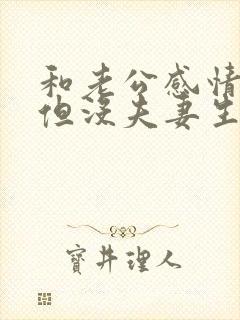 和老公感情
但没夫妻生
寳井理人